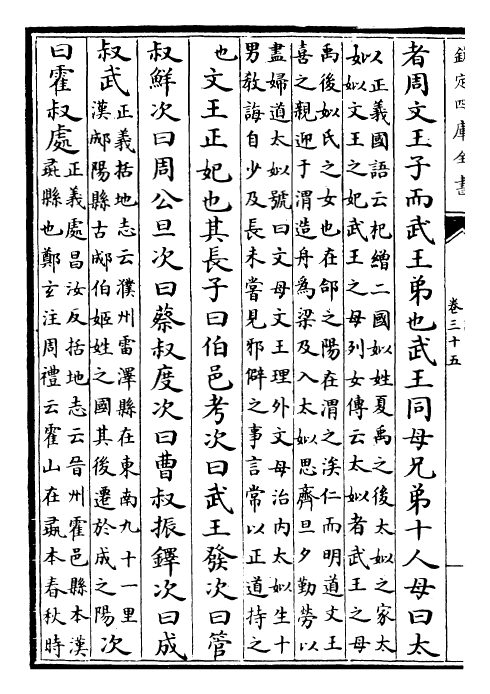 欽定四庫全書
卷三十五
者周文王子而武王弟也武王同母兄弟十人母曰太
姒
正義國語云杞繒二國姒姓夏禹之後太姒之家太
姒文王之妃武王之母列女傳云太姒者武王之母
禹後姒氏之女也在郃之陽在渭之涘仁而明道文王
喜之親迎于渭造舟為梁及入太姒思齊旦夕勤勞以
盡婦道太姒號曰文母文王理外文母治内太姒生十
男教誨自少及長未嘗見邪僻之事言常以正道持之
也文王正妃也其長子曰伯邑考次曰武王發次曰管
叔鮮次曰周公旦次曰蔡叔度次曰曹叔振鐸次曰成
叔武
正義括地志云濮州雷澤縣在東南九十一里
漢郕陽縣古郕伯姬姓之國其後遷於成之陽
次
曰霍叔處
正義處昌汝反括地志云晉州霍邑縣本漢
彘縣也鄭玄注周禮云霍山在彘本春秋時